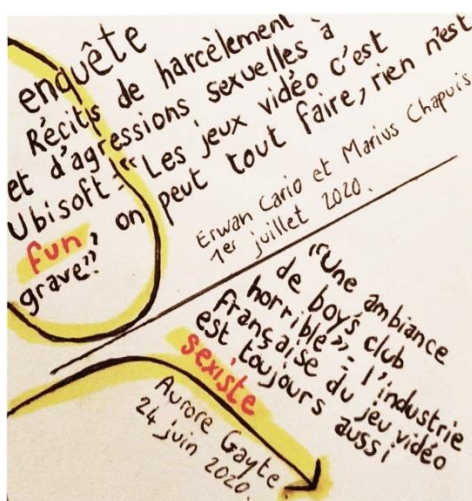 enquête
Récits de harcèlement
et d'agressions sexuelles à
Ubisoft - "Les jeux vidéo c'est
fun, on peut tout faire, rien n'est
grave".
Erwan Cario et Marius Chapuis
1er juillet 2020.
"Une ambiance
de boy's club
horrible" - l'industrie
française du jeu vidéo
est toujours aussi
sexiste
Aurore Gayte
24 juin 2020.